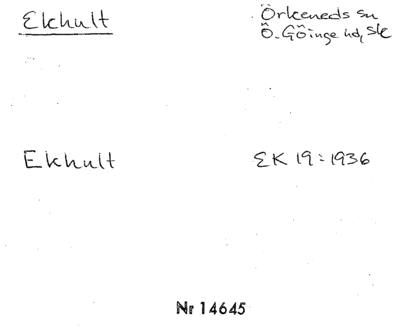 Ekhult
Örkeneds sn
Ö. Göinge hd, Sk
Ekhult
EK 19:1936
Nr 14645